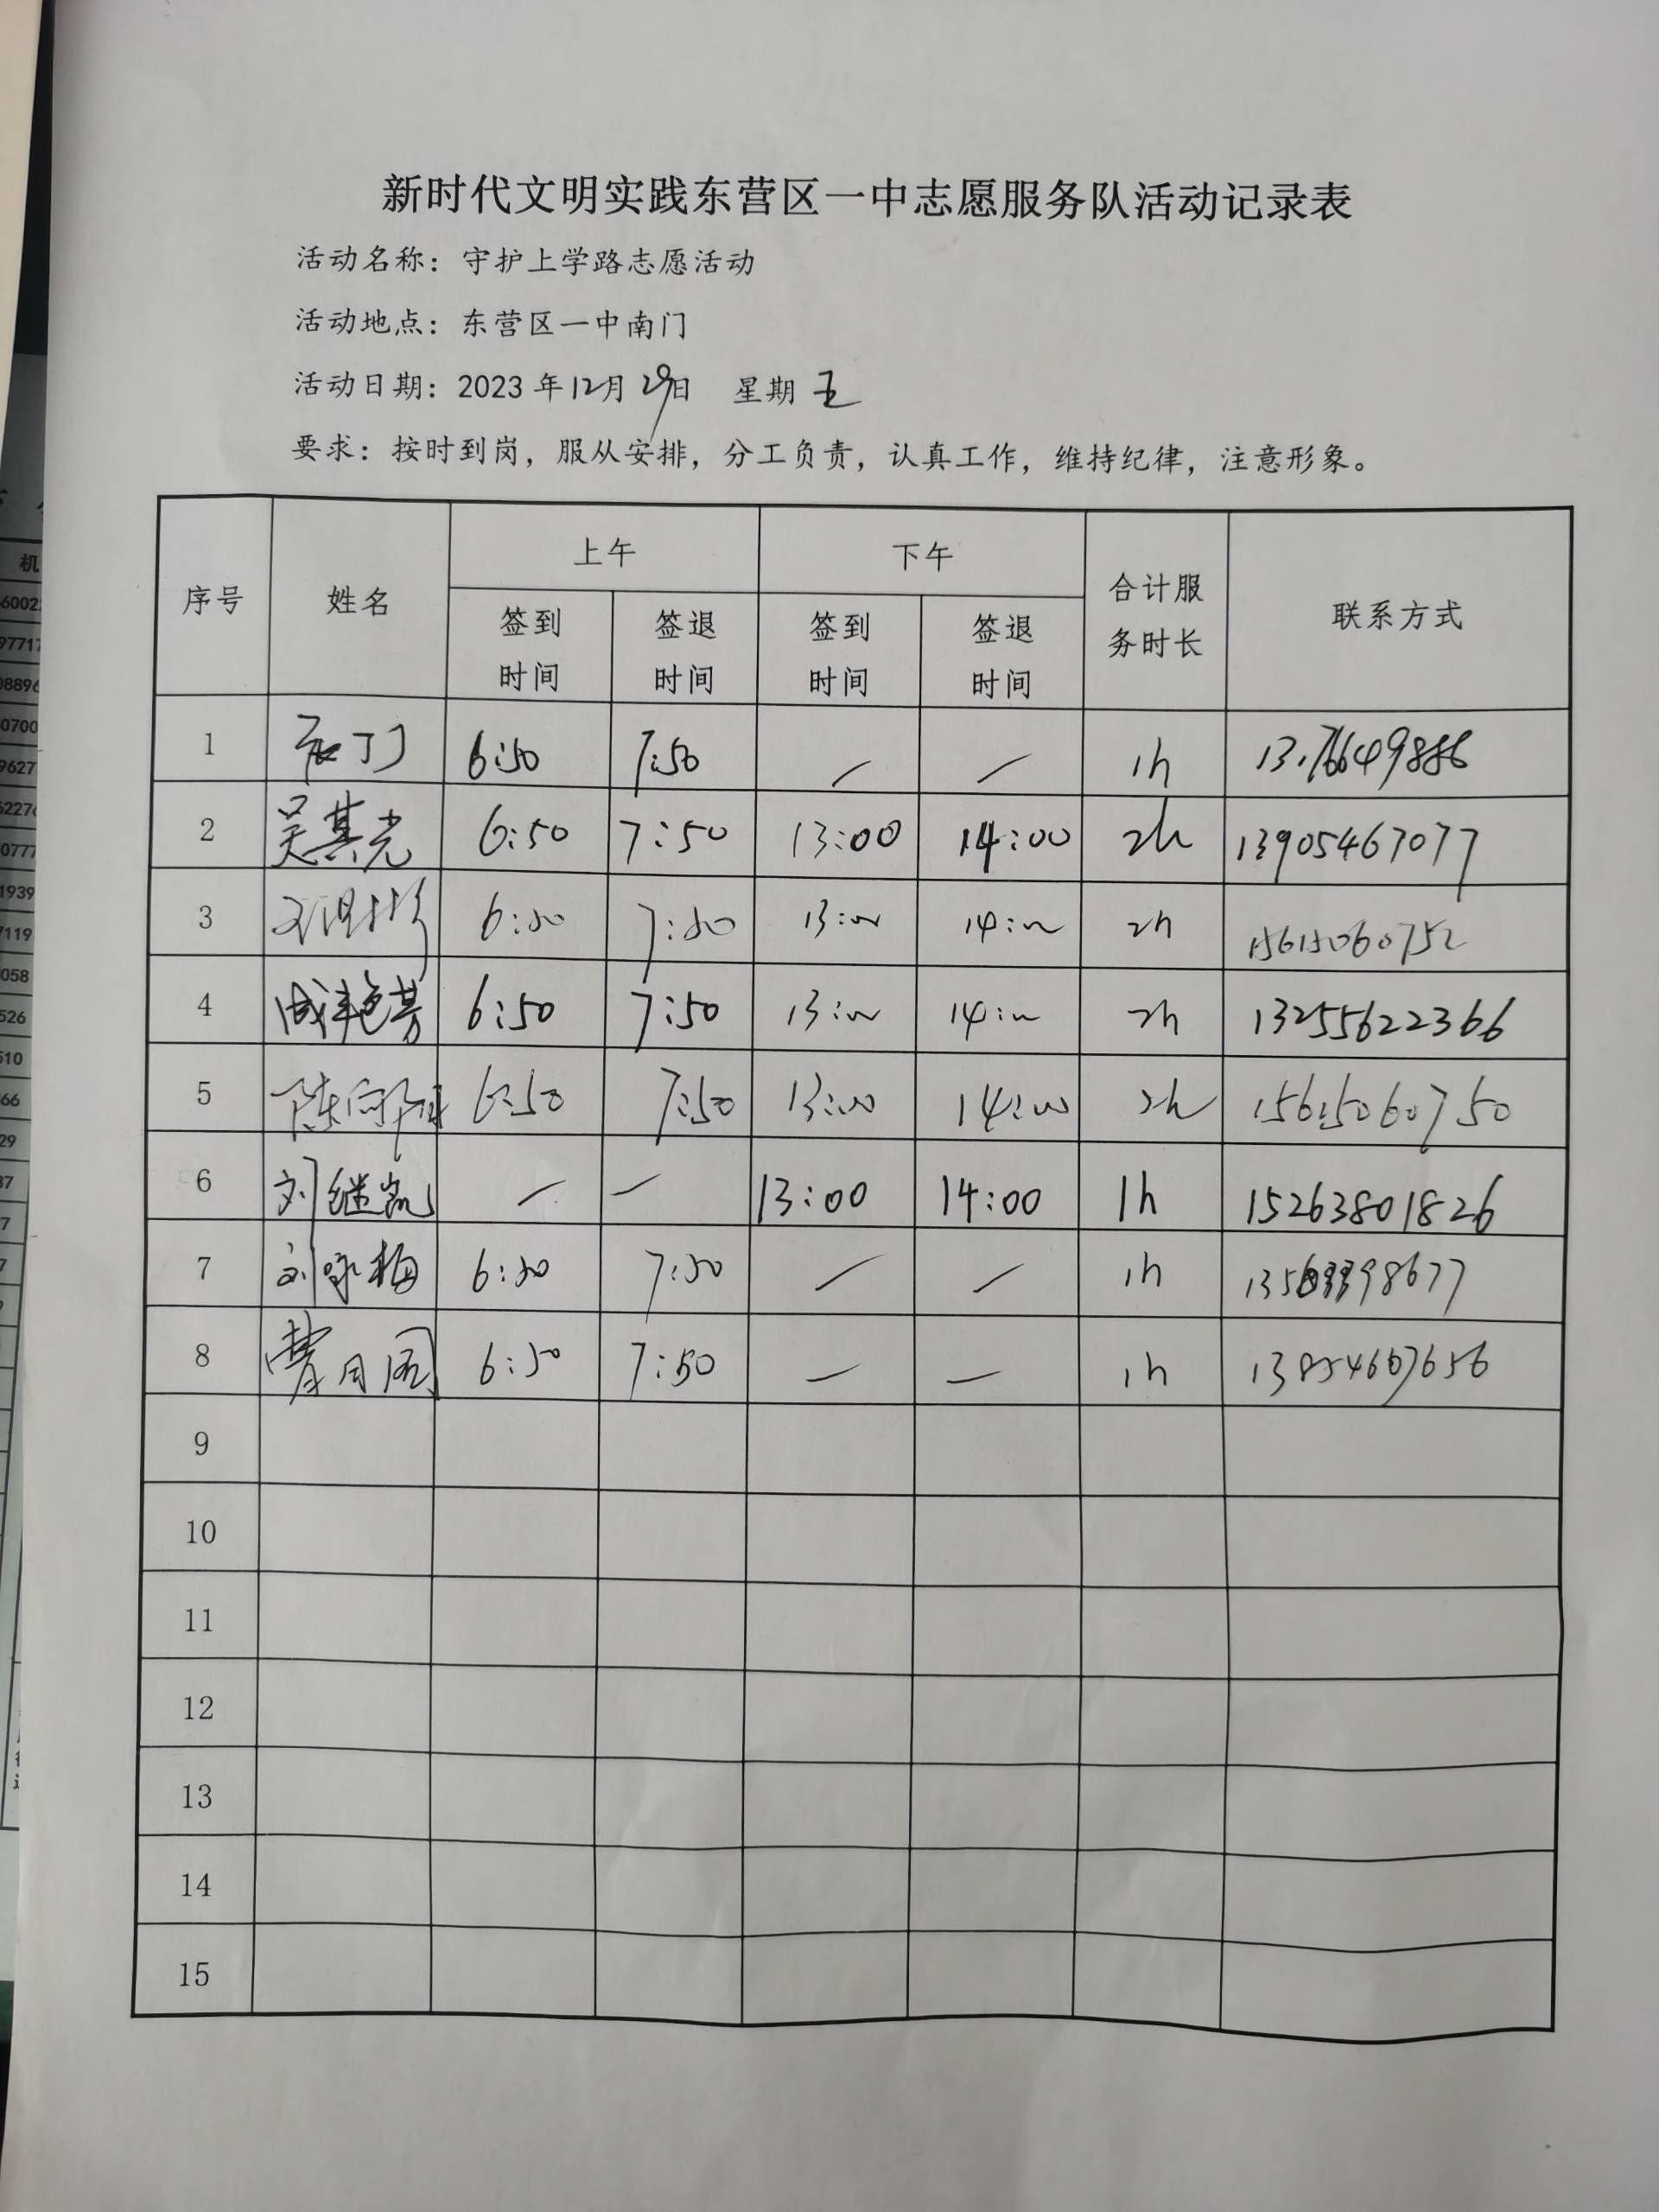 新时代文明实践东营区一中志愿服务队活动记录表
活动名称：守护上学路志愿活动
活动地点：东营区一中南门
活动日期：2023年12月29日 星期五
要求：按时到岗，服从安排，分工负责，认真工作，维持纪律，注意形象。
序号 姓名 上午 下午 合计服务时长 联系方式
签到时间 签退时间 签到时间 签退时间
1 6:50 7:50 — — 1h
2 吴其光 6:50 7:50 13:00 14:00 2h 13905467077
3 6:50 7:50 13:00 14:00 2h 15615060752
4 6:50 7:50 13:00 14:00 2h 13255622366
5 6:50 7:50 13:00 14:00 2h 15615060750
6 刘继凯 — — 13:00 14:00 1h 15263801826
7 刘咏梅 6:50 7:50 — — 1h
8 6:50 7:50 — — 1h 13854607656
9
10
11
12
13
14
15
机